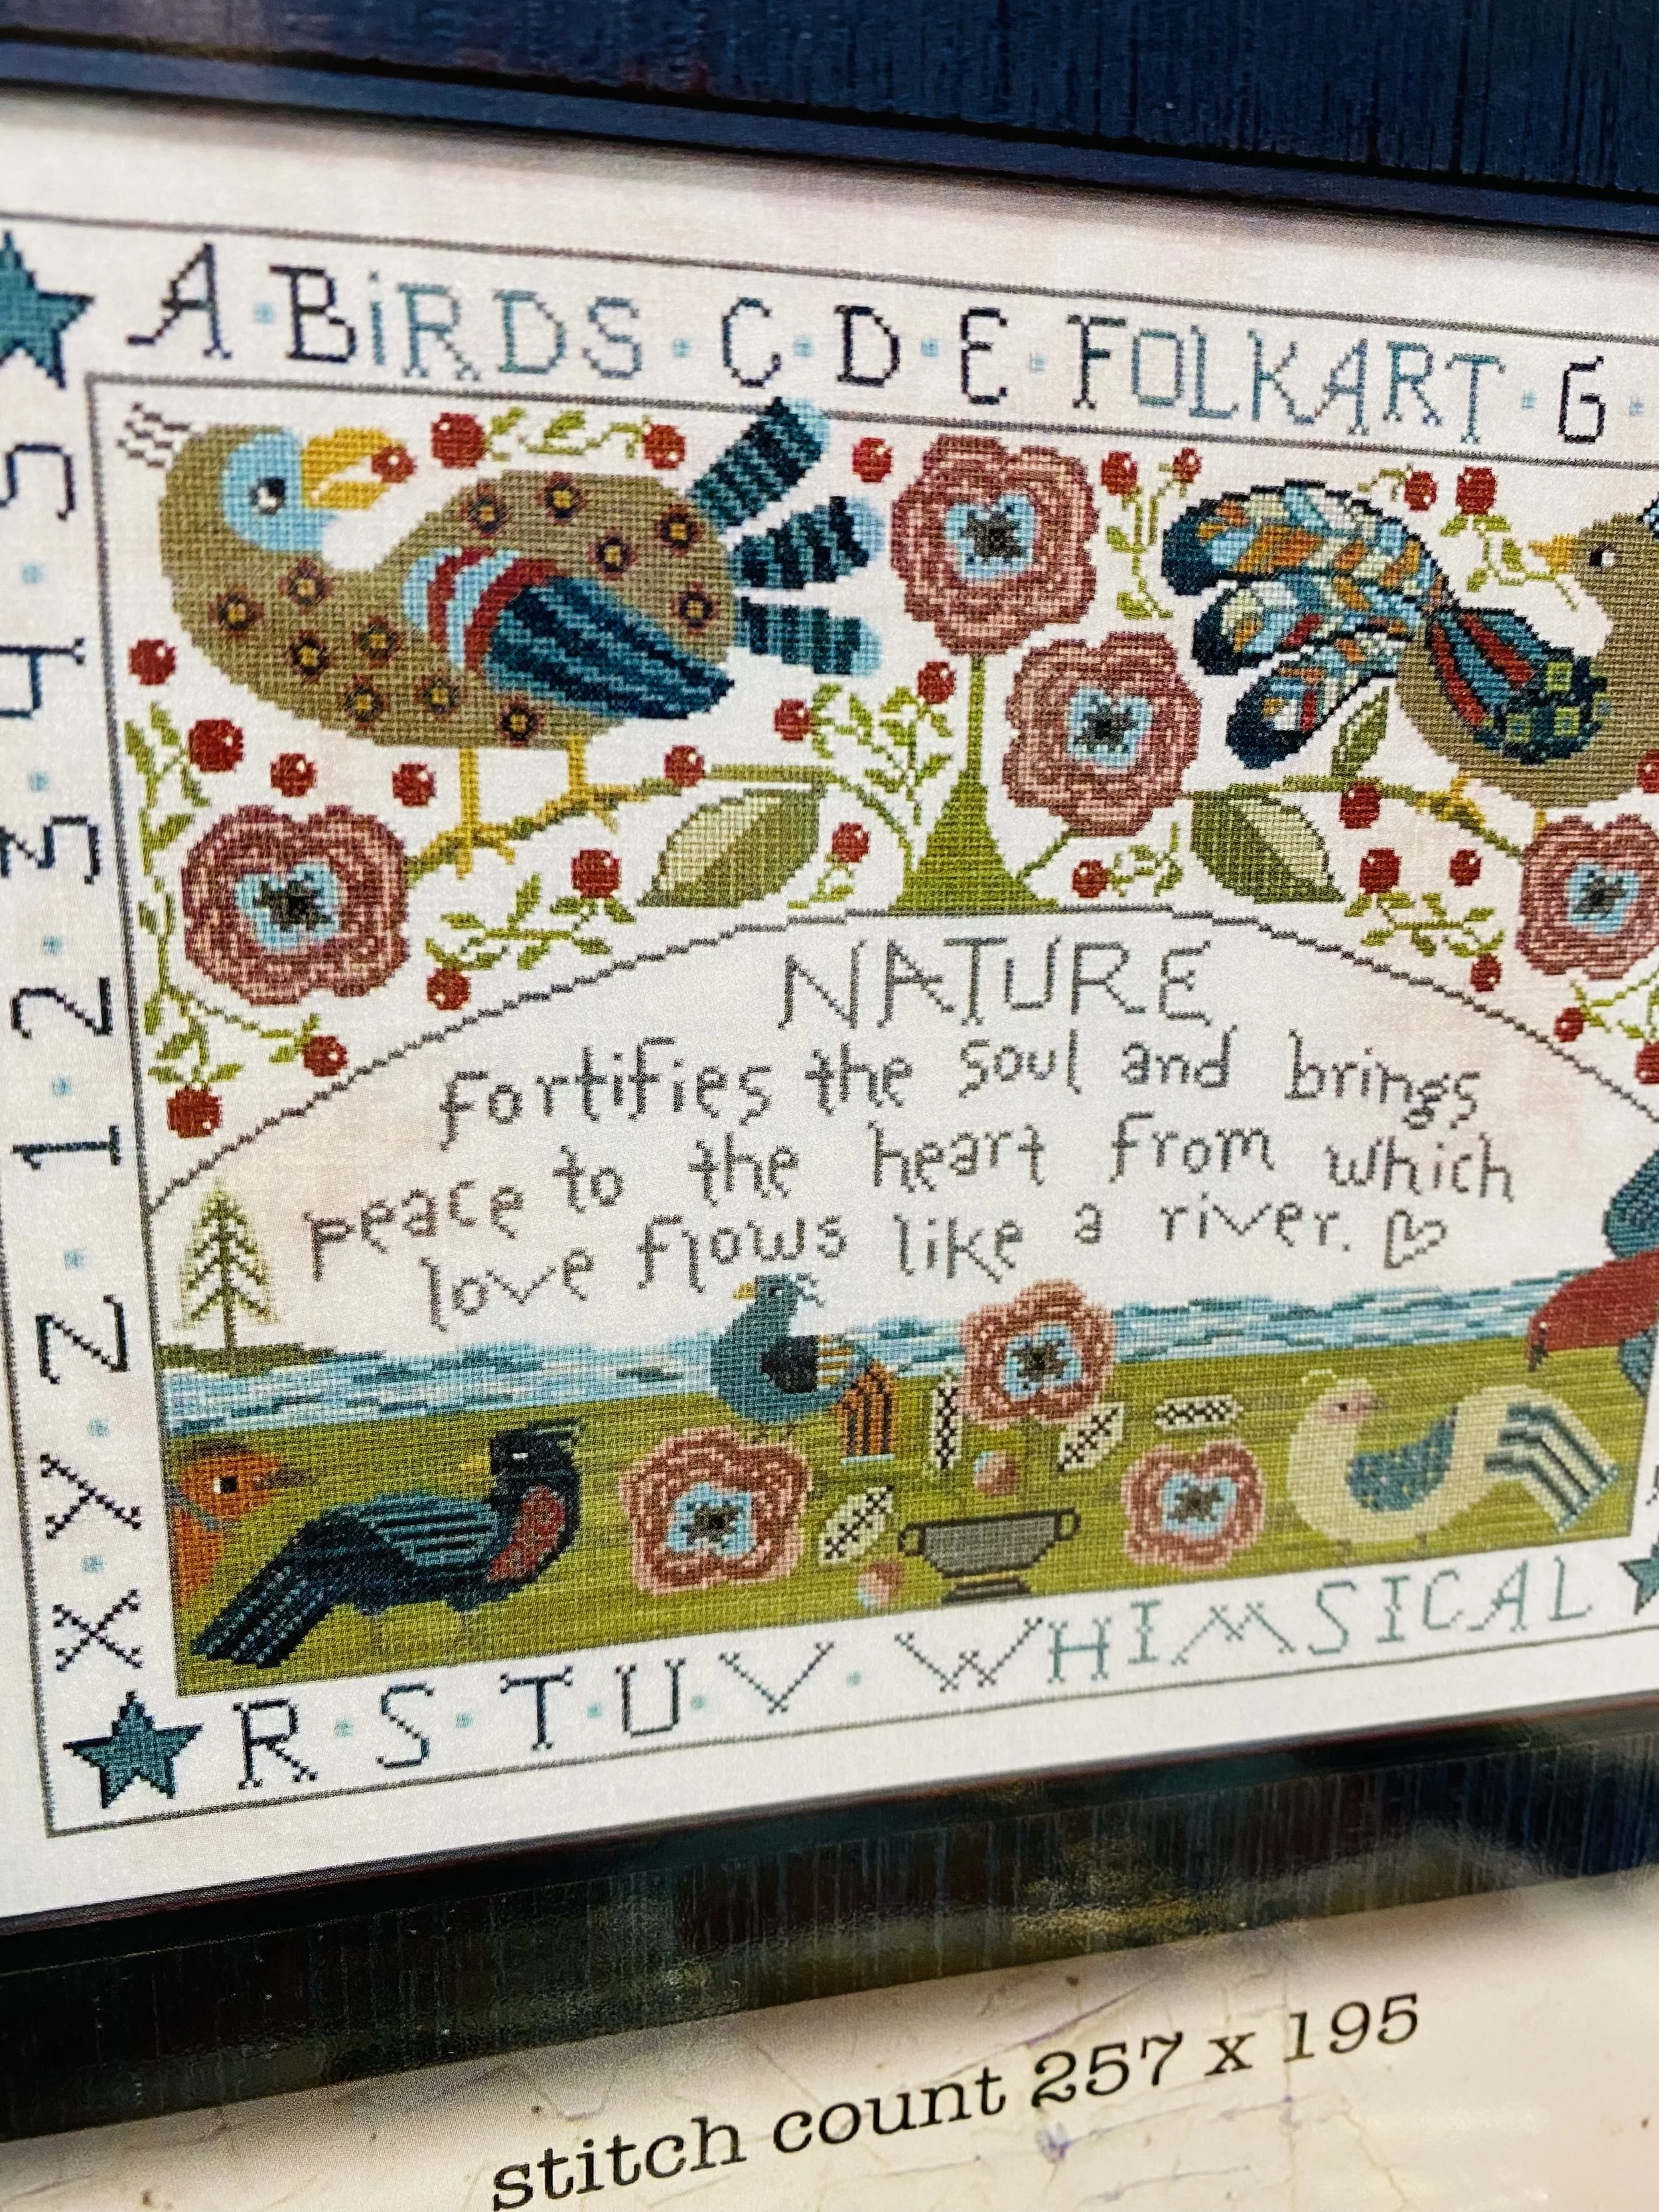 A·BiRDS·C·D·E·FOLKART·G·
5·4·3·2·1·Z·Y·X
NATURE
fortifies the soul and brings
peace to the heart from which
love flows like a river.
R·S·T·U·V·WHIMSICAL
stitch count 257 x 195